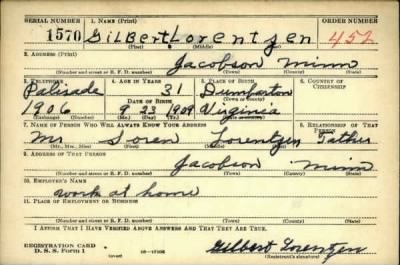 SERIAL NUMBER 1. NAME (Print) ORDER NUMBER
1570 Gilbert Lorentzen 452
(First) (Middle) (Last)
2. ADDRESS (Print)
Jacobson Minn
(Number and street or R. F. D. number) (Town) (County) (State)
3. TELEPHONE 4. AGE IN YEARS 5. PLACE OF BIRTH 6. COUNTRY OF CITIZENSHIP
Palisade 31 Dumbarton
DATE OF BIRTH (Town or county)
1906 9 23 1909 Virginia
(Exchange) (Number) (Mo.) (Day) (Yr.) (State or country)
7. NAME OF PERSON WHO WILL ALWAYS KNOW YOUR ADDRESS 8. RELATIONSHIP OF THAT PERSON
Mr Soren Lorentzen Father
(Mr., Mrs., Miss) (First) (Middle) (Last)
9. ADDRESS OF THAT PERSON
Jacobson Minn
(Number and street or R. F. D. number) (Town) (County) (State)
10. EMPLOYER'S NAME
work at home
11. PLACE OF EMPLOYMENT OR BUSINESS
(Number and street or R. F. D. number) (Town) (County) (State)
I AFFIRM THAT I HAVE VERIFIED ABOVE ANSWERS AND THAT THEY ARE TRUE.
REGISTRATION CARD
D. S. S. Form 1 (over) Gilbert Lorentzen
(Registrant's signature)